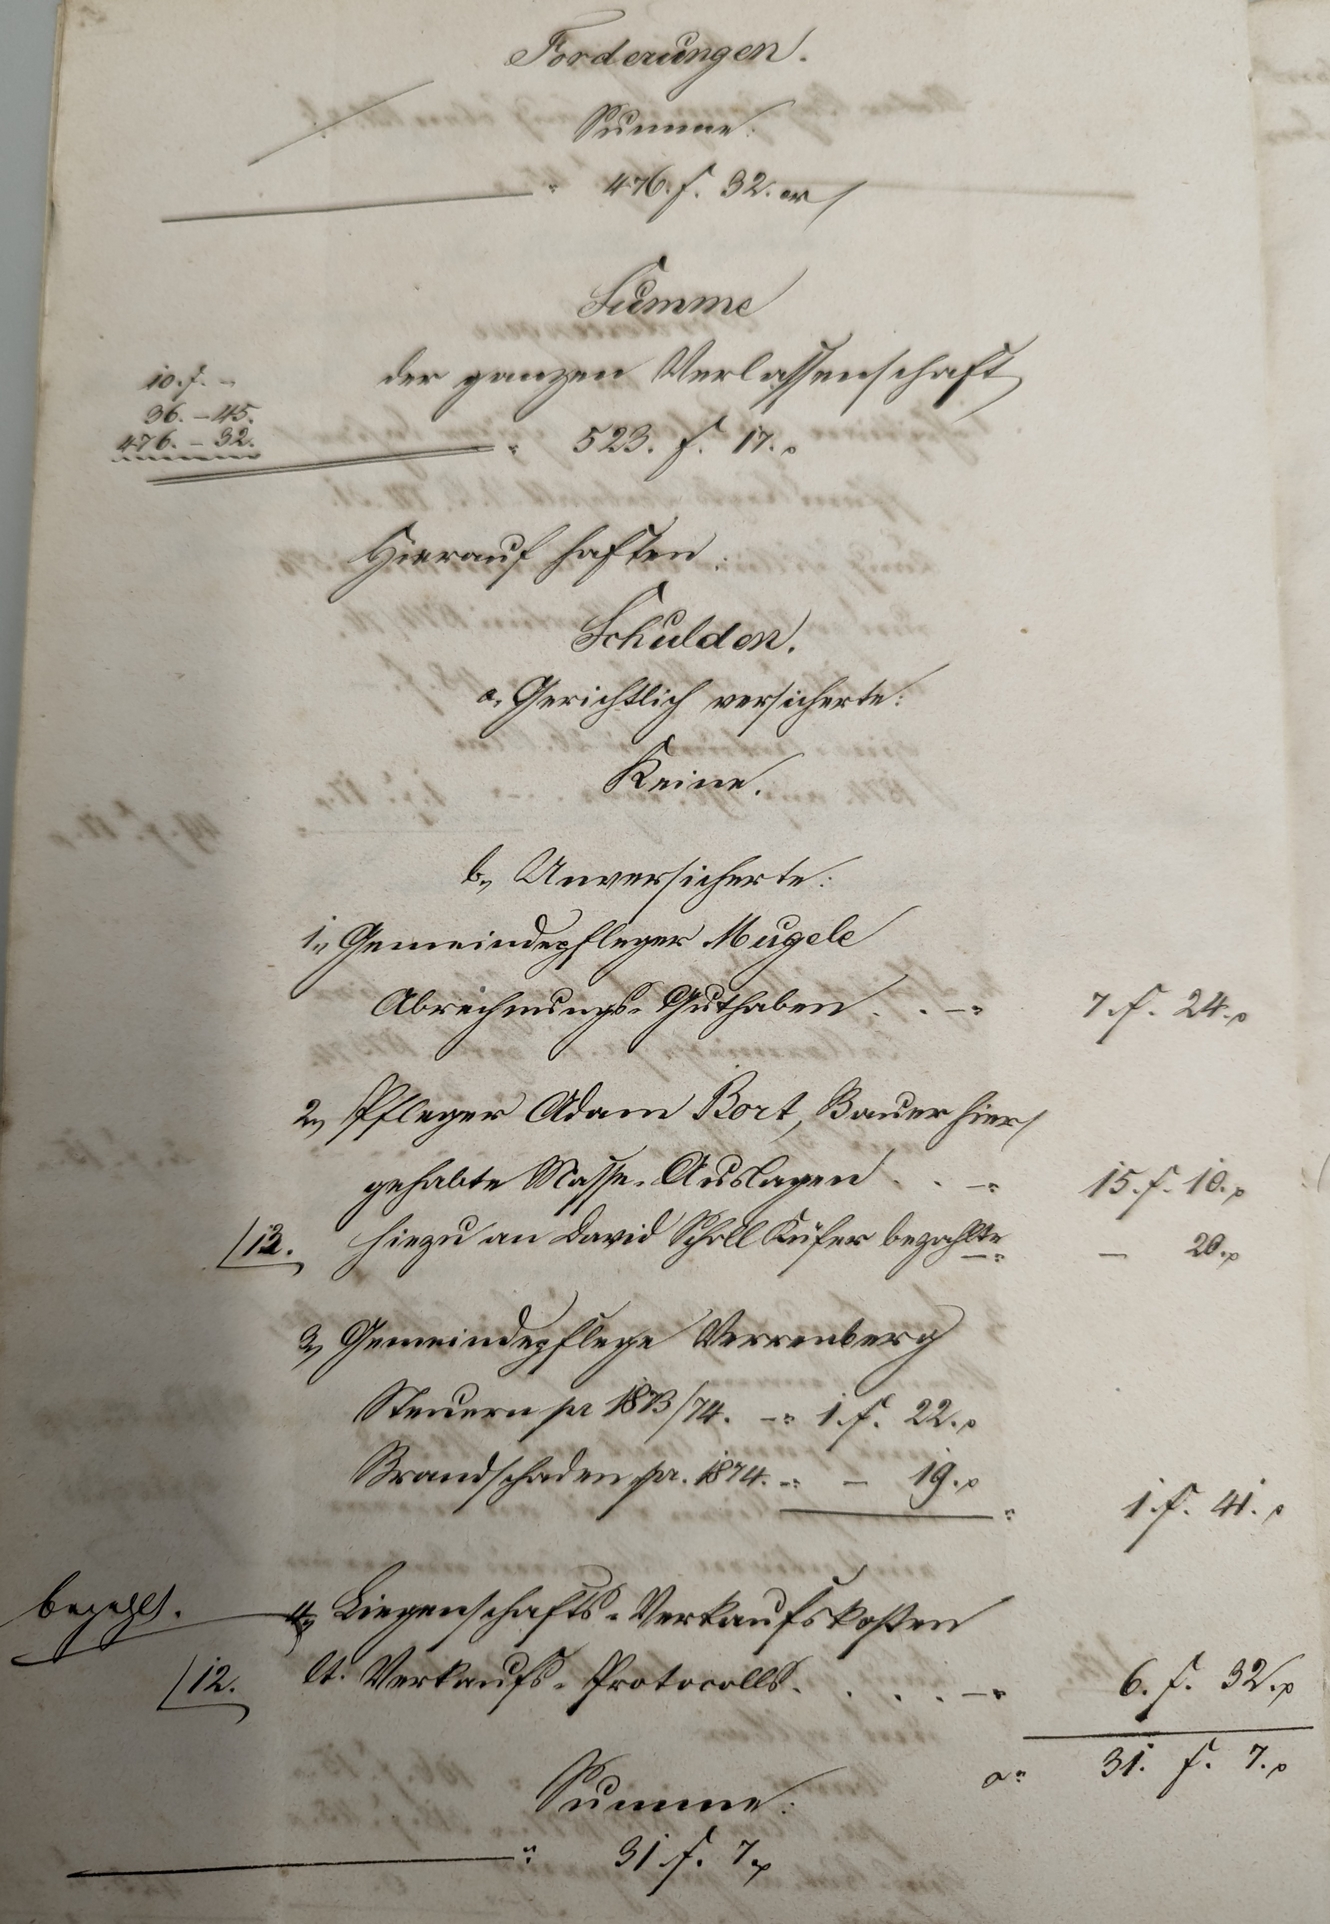 Forderungen.
Summe:
476. f. 32. xr
Summe
der ganzen Verlassenschaft
10. f. –
36. – 45.
476. – 32.
523. f. 17.
Hierauf haften:
Schulden.
a, Gerichtlich versicherte:
Keine.
b, Unversicherte:
1, Gemeindepfleger Mugele
Abrechnungs-Guthaben . . – 7. f. 24.
2, Pfleger Adam Bort, Bauer hier
gehabte Masse-Auslagen . . – 15. f. 10.
/12. hiezu an David Scholl Küfer bezahlte – 20.
3, Gemeindepflege Verrenberg
Steuern pr 1873/74. – 1. f. 22.
Brandschaden pr. 1874. – 19.
1. f. 41.
bezahlt. 4, Liegenschafts-Verkaufskosten
/12. lt. Verkaufs-Protocolls. . . . . – 6. f. 32.
31. f. 7.
Summe:
31 f. 7